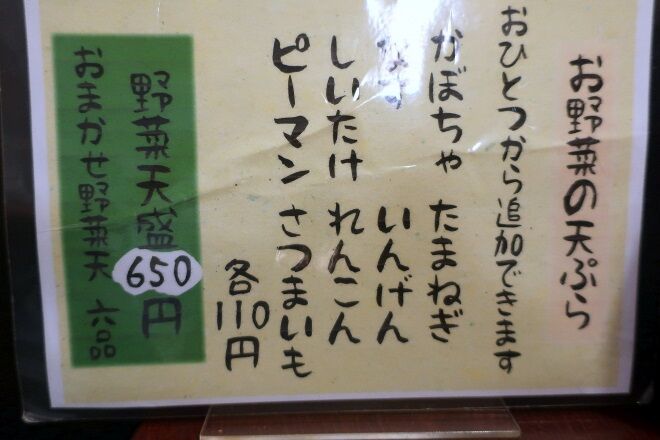 お野菜の天ぷら
おひとつから追加できます
かぼちゃ たまねぎ
なす いんげん
しいたけ れんこん
ピーマン さつまいも
各110円
野菜天盛650円
おまかせ野菜天 六品